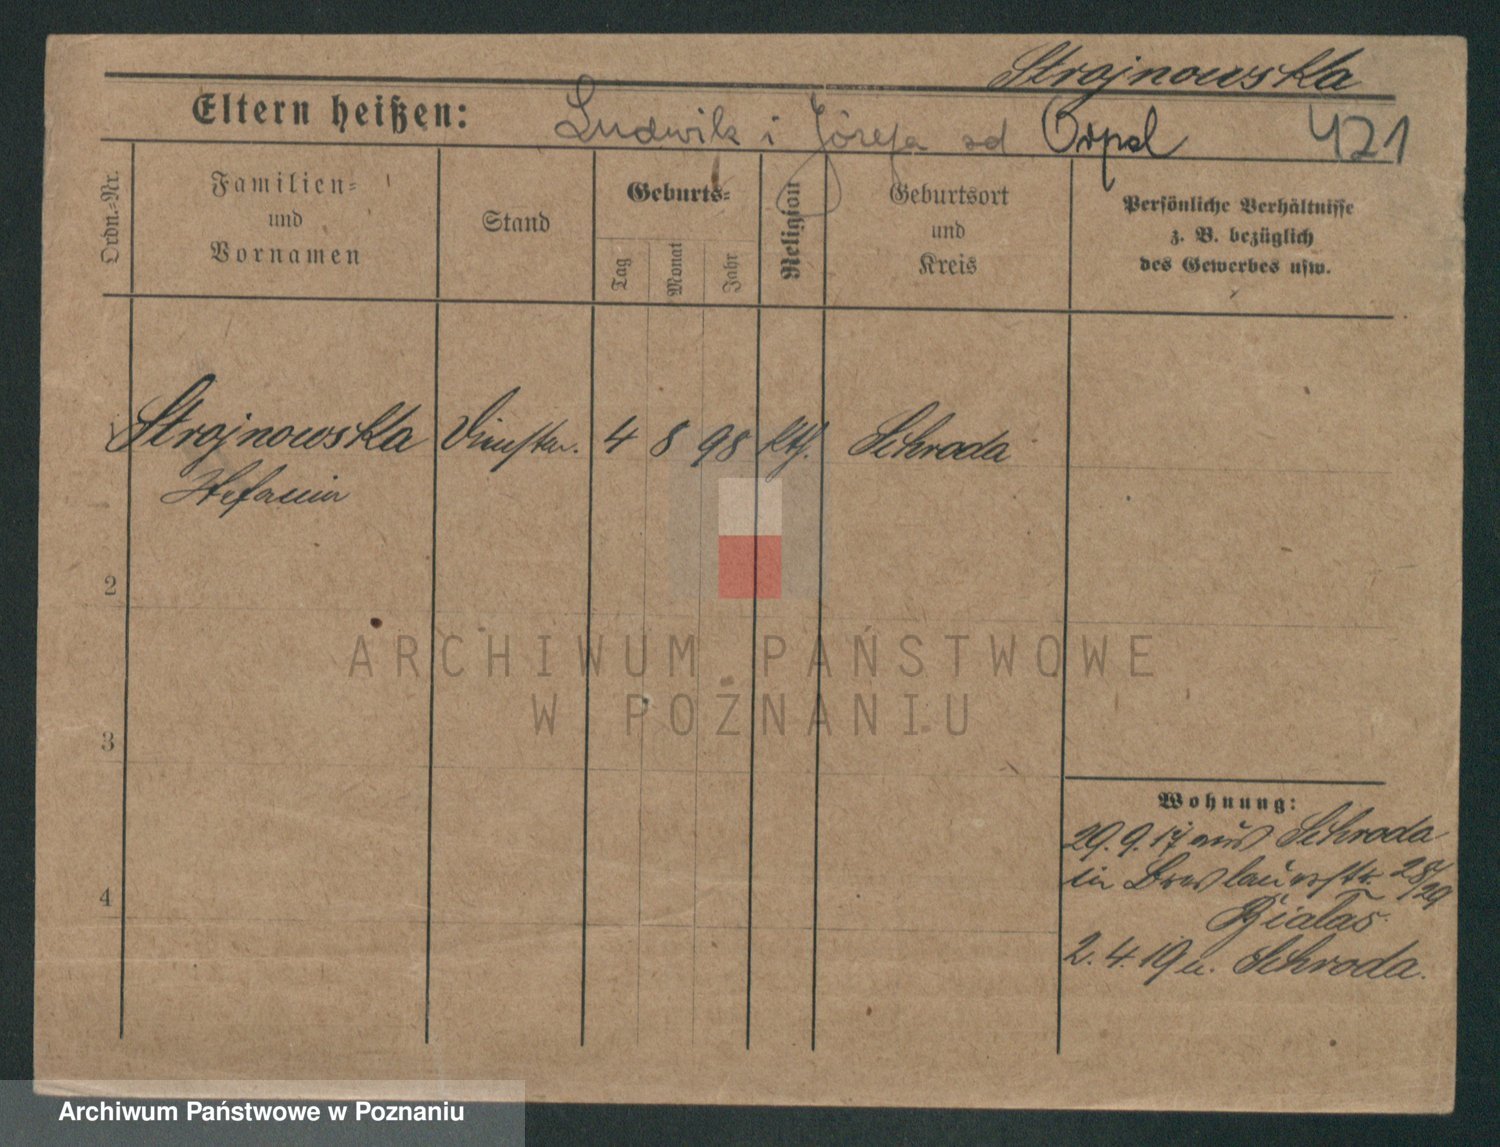 Strojnowska
Eltern heißen: Ludwik i Józefa
421
Ordn.=Nr.
Familien=
und
Vornamen
Stand
Geburts=
Tag
Monat
Jahr
Religion
Geburtsort
und
Kreis
Persönliche Verhältnisse
z. B. bezüglich
des Gewerbes usw.
1
Strojnowska 4 8 98 kth. Schroda
Stefania
2
3
4
Wohnung:
29. 9. 17 aus Schroda
in Breslauerstr. 28/29
Białas
2. 4. 19 n. Schroda.
ARCHIWUM PAŃSTWOWE
W POZNANIU
Archiwum Państwowe w Poznaniu